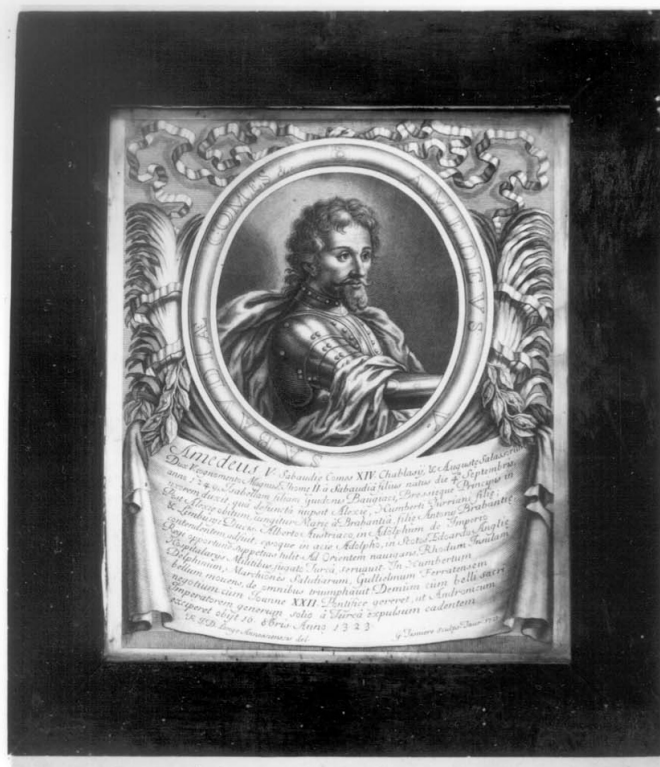 AMEDEVS V.
SABAVDIÆ COMES &.
Amedeus V. Sabaudię Comes XIV. Chablasy, & Augustę Salassorum
Dux Pedemontis Magnus, Thomę II. à Sabaudiâ filius natus die 4ª Septembris,
anni 1249. Isabellam filiam Guidonis Baugiaci, Bressięque Principis in
uxorem duxit, quâ defunctâ nupsit Alexię, Humberti Virriani filię;
Post Alexię obitum iungitur Marię à Brabantiâ, filię Ducis Brabantię,
& Limburgi Ducis, Alberto Austriaco, in Adolphum de Imperio
contendentem adiuit, cęsoque in acie Adolpho, in Scotos Eduardo Anglię
Regi opportunè suppetias tulit. Ad Orientem nauigans, Rhodum Insulam
Hospitalarys Militibus, fugato Turcâ, seruauit. In Humbertum
Delphinum, Marchiones Salutiarum, Gullielmum Ferratensem
bellum mouens, de omnibus triumphauit. Demùm cùm belli sacri
negotium cum Ioanne XXII. Pontifice gereret, ut Andronicum
Imperatorem generum solio à Turcâ expulsum cadentem
exciperet obijt 16. 8bris Anno 1323.
del. G. Tasniere sculps. Taur.